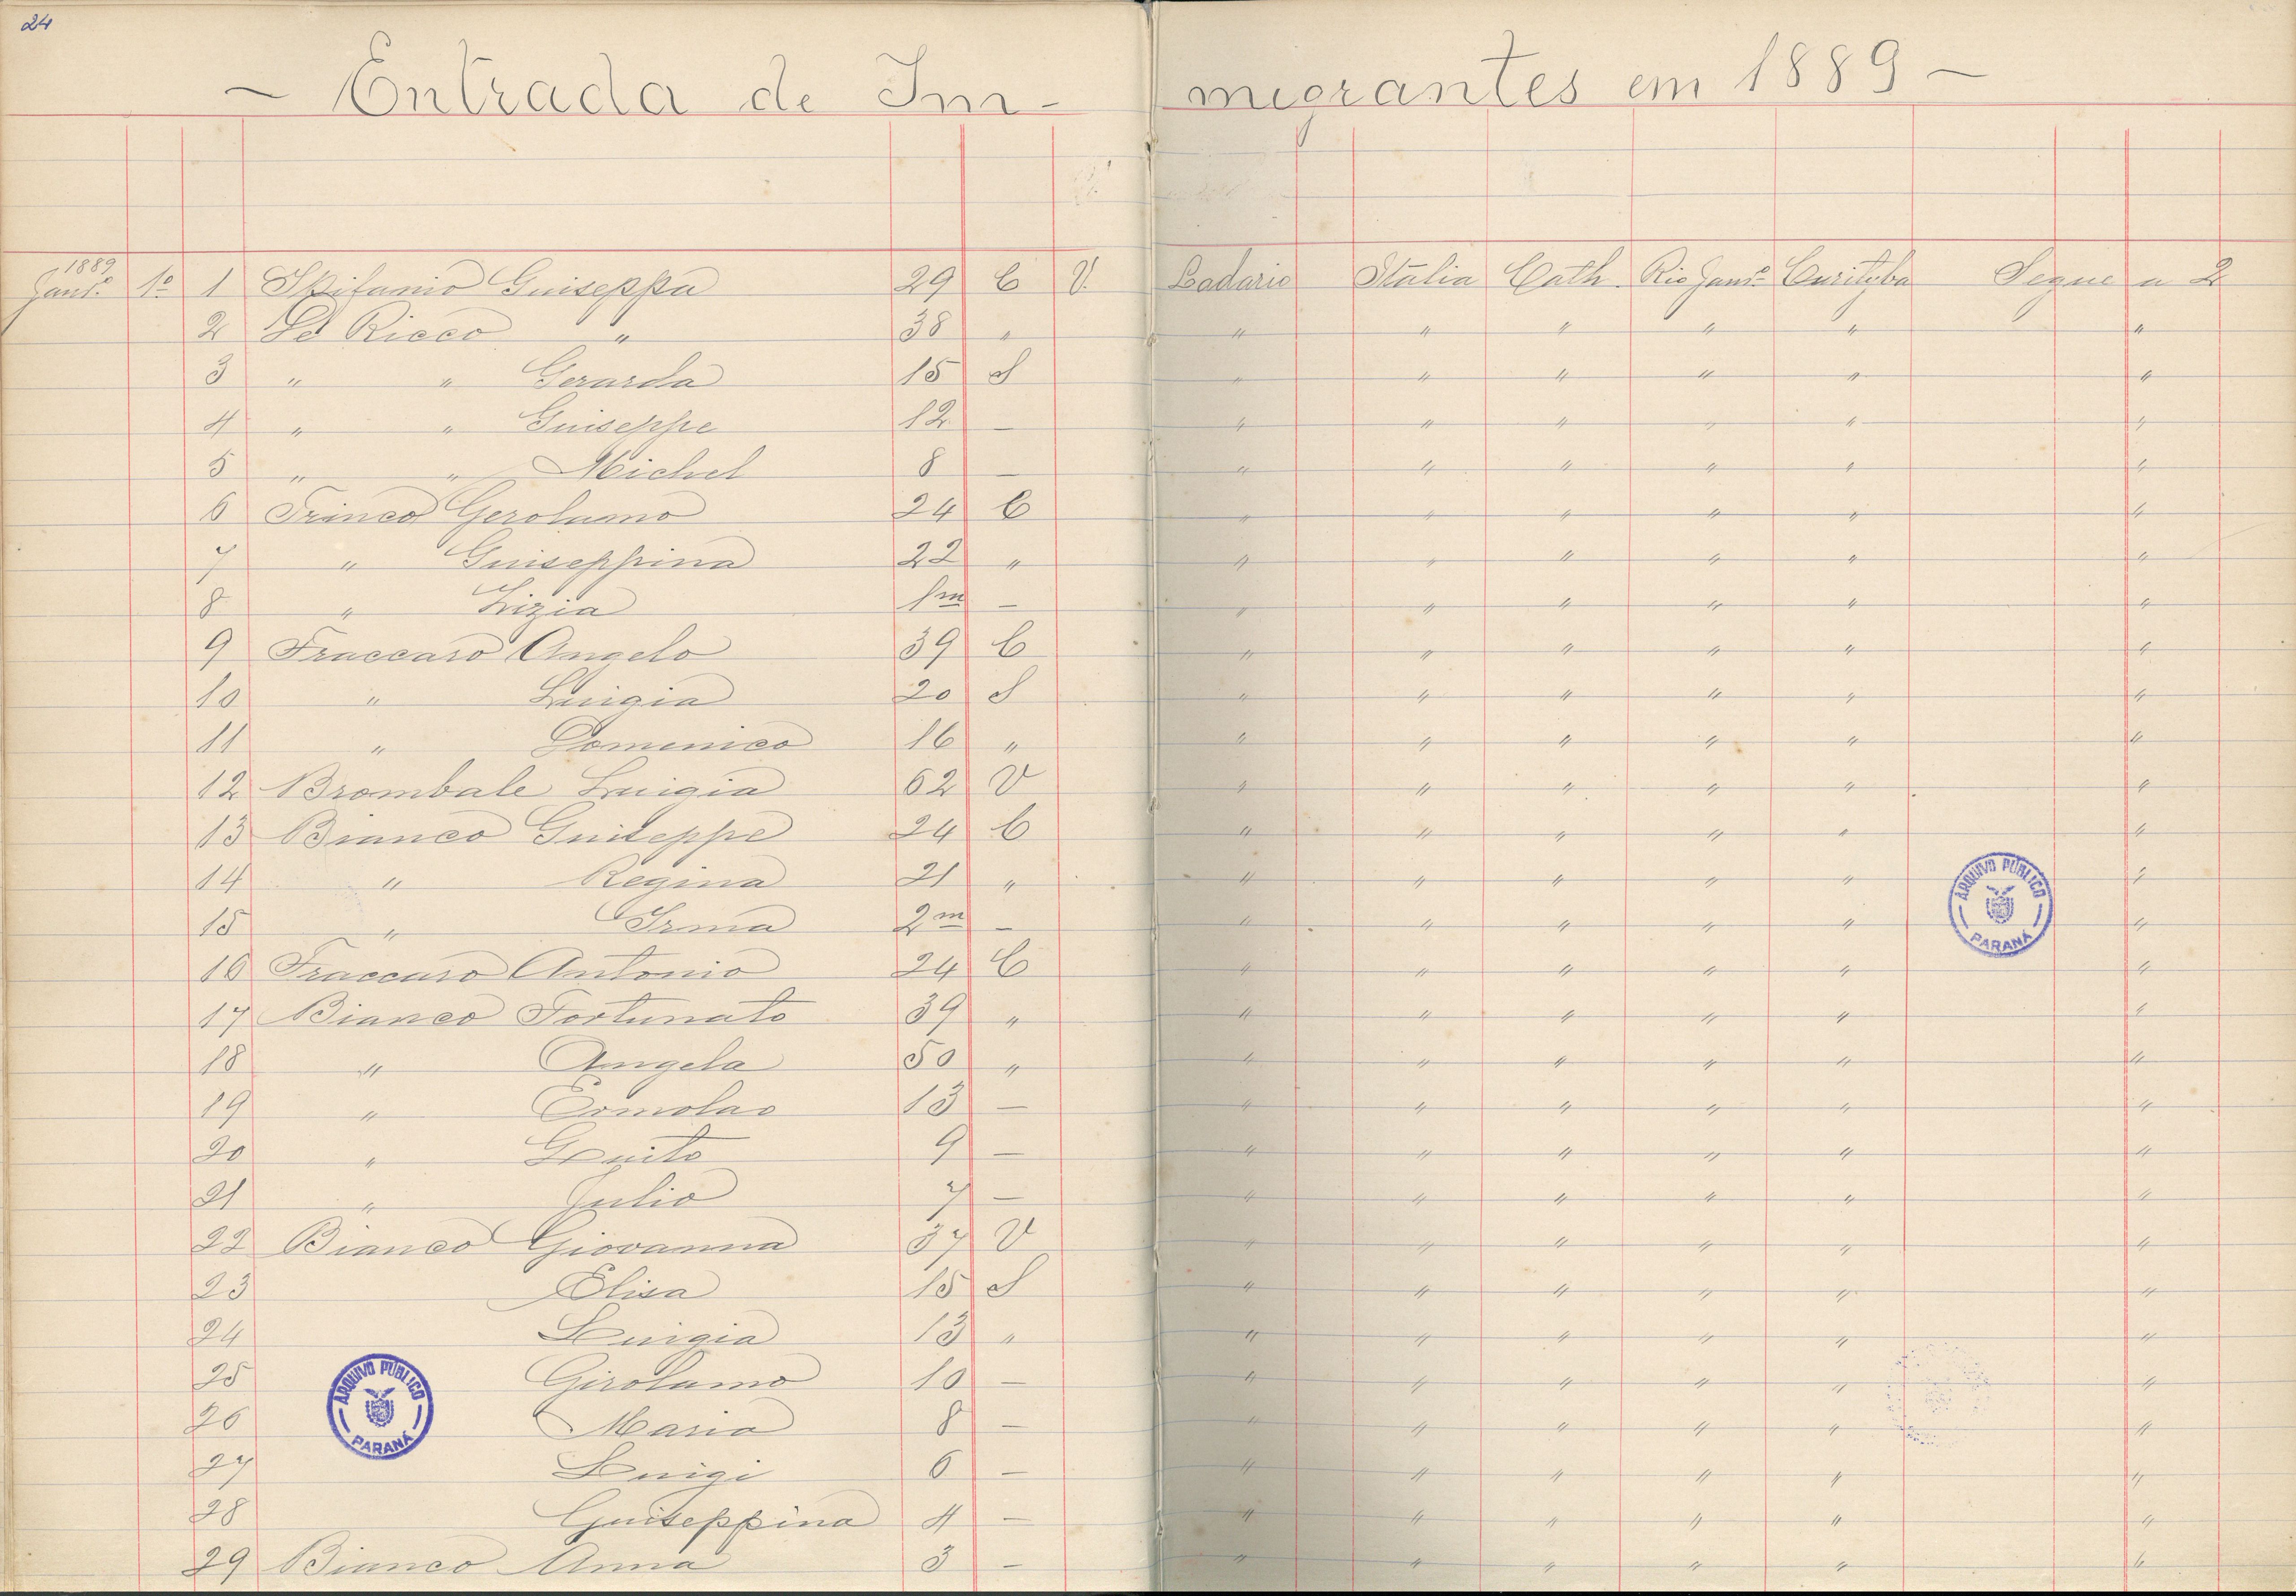 24
– Entrada de Im-migrantes em 1889 –
1889
Janrº 1º 1 Skifanio Guiseppa 29 C V. Ladario Italia Cath. Rio Janrº Curityba Segue a 2
2 De Ricco " 38 " " " " " " "
3 " " Gerarda 15 S " " " " " "
4 " " Guiseppe 12 – " " " " " "
5 " " Michel 8 – " " " " " "
6 Trinco Gerolumo 24 C " " " " " "
7 " Guiseppina 22 " " " " " " "
8 " Lizia 1m – " " " " " "
9 Fraccaro Angelo 39 C " " " " " "
10 " Luigia 20 S " " " " " "
11 " Domenico 16 " " " " " " "
12 Brombale Luigia 62 V " " " " " "
13 Bianco Guiseppe 24 C " " " " " "
14 " Regina 21 " " " " " " "
15 " Irma 2m – " " " " " "
16 Fraccaro Antonio 24 C " " " " " "
17 Bianco Fortunato 39 " " " " " " "
18 " Angela 50 " " " " " " "
19 " Ermolao 13 – " " " " " "
20 " Guito 9 – " " " " " "
21 " Julio 7 – " " " " " "
22 Bianco Giovanna 37 V " " " " " "
23 Elisa 15 S " " " " " "
24 Luigia 13 " " " " " " "
25 Girolamo 10 – " " " " " "
26 Maria 8 – " " " " " "
27 Luigi 6 – " " " " " "
28 Guiseppina 4 – " " " " " "
29 Bianco Anna 3 – " " " " " "
ARQUIVO PÚBLICO
PARANÁ
ARQUIVO PÚBLICO
PARANÁ